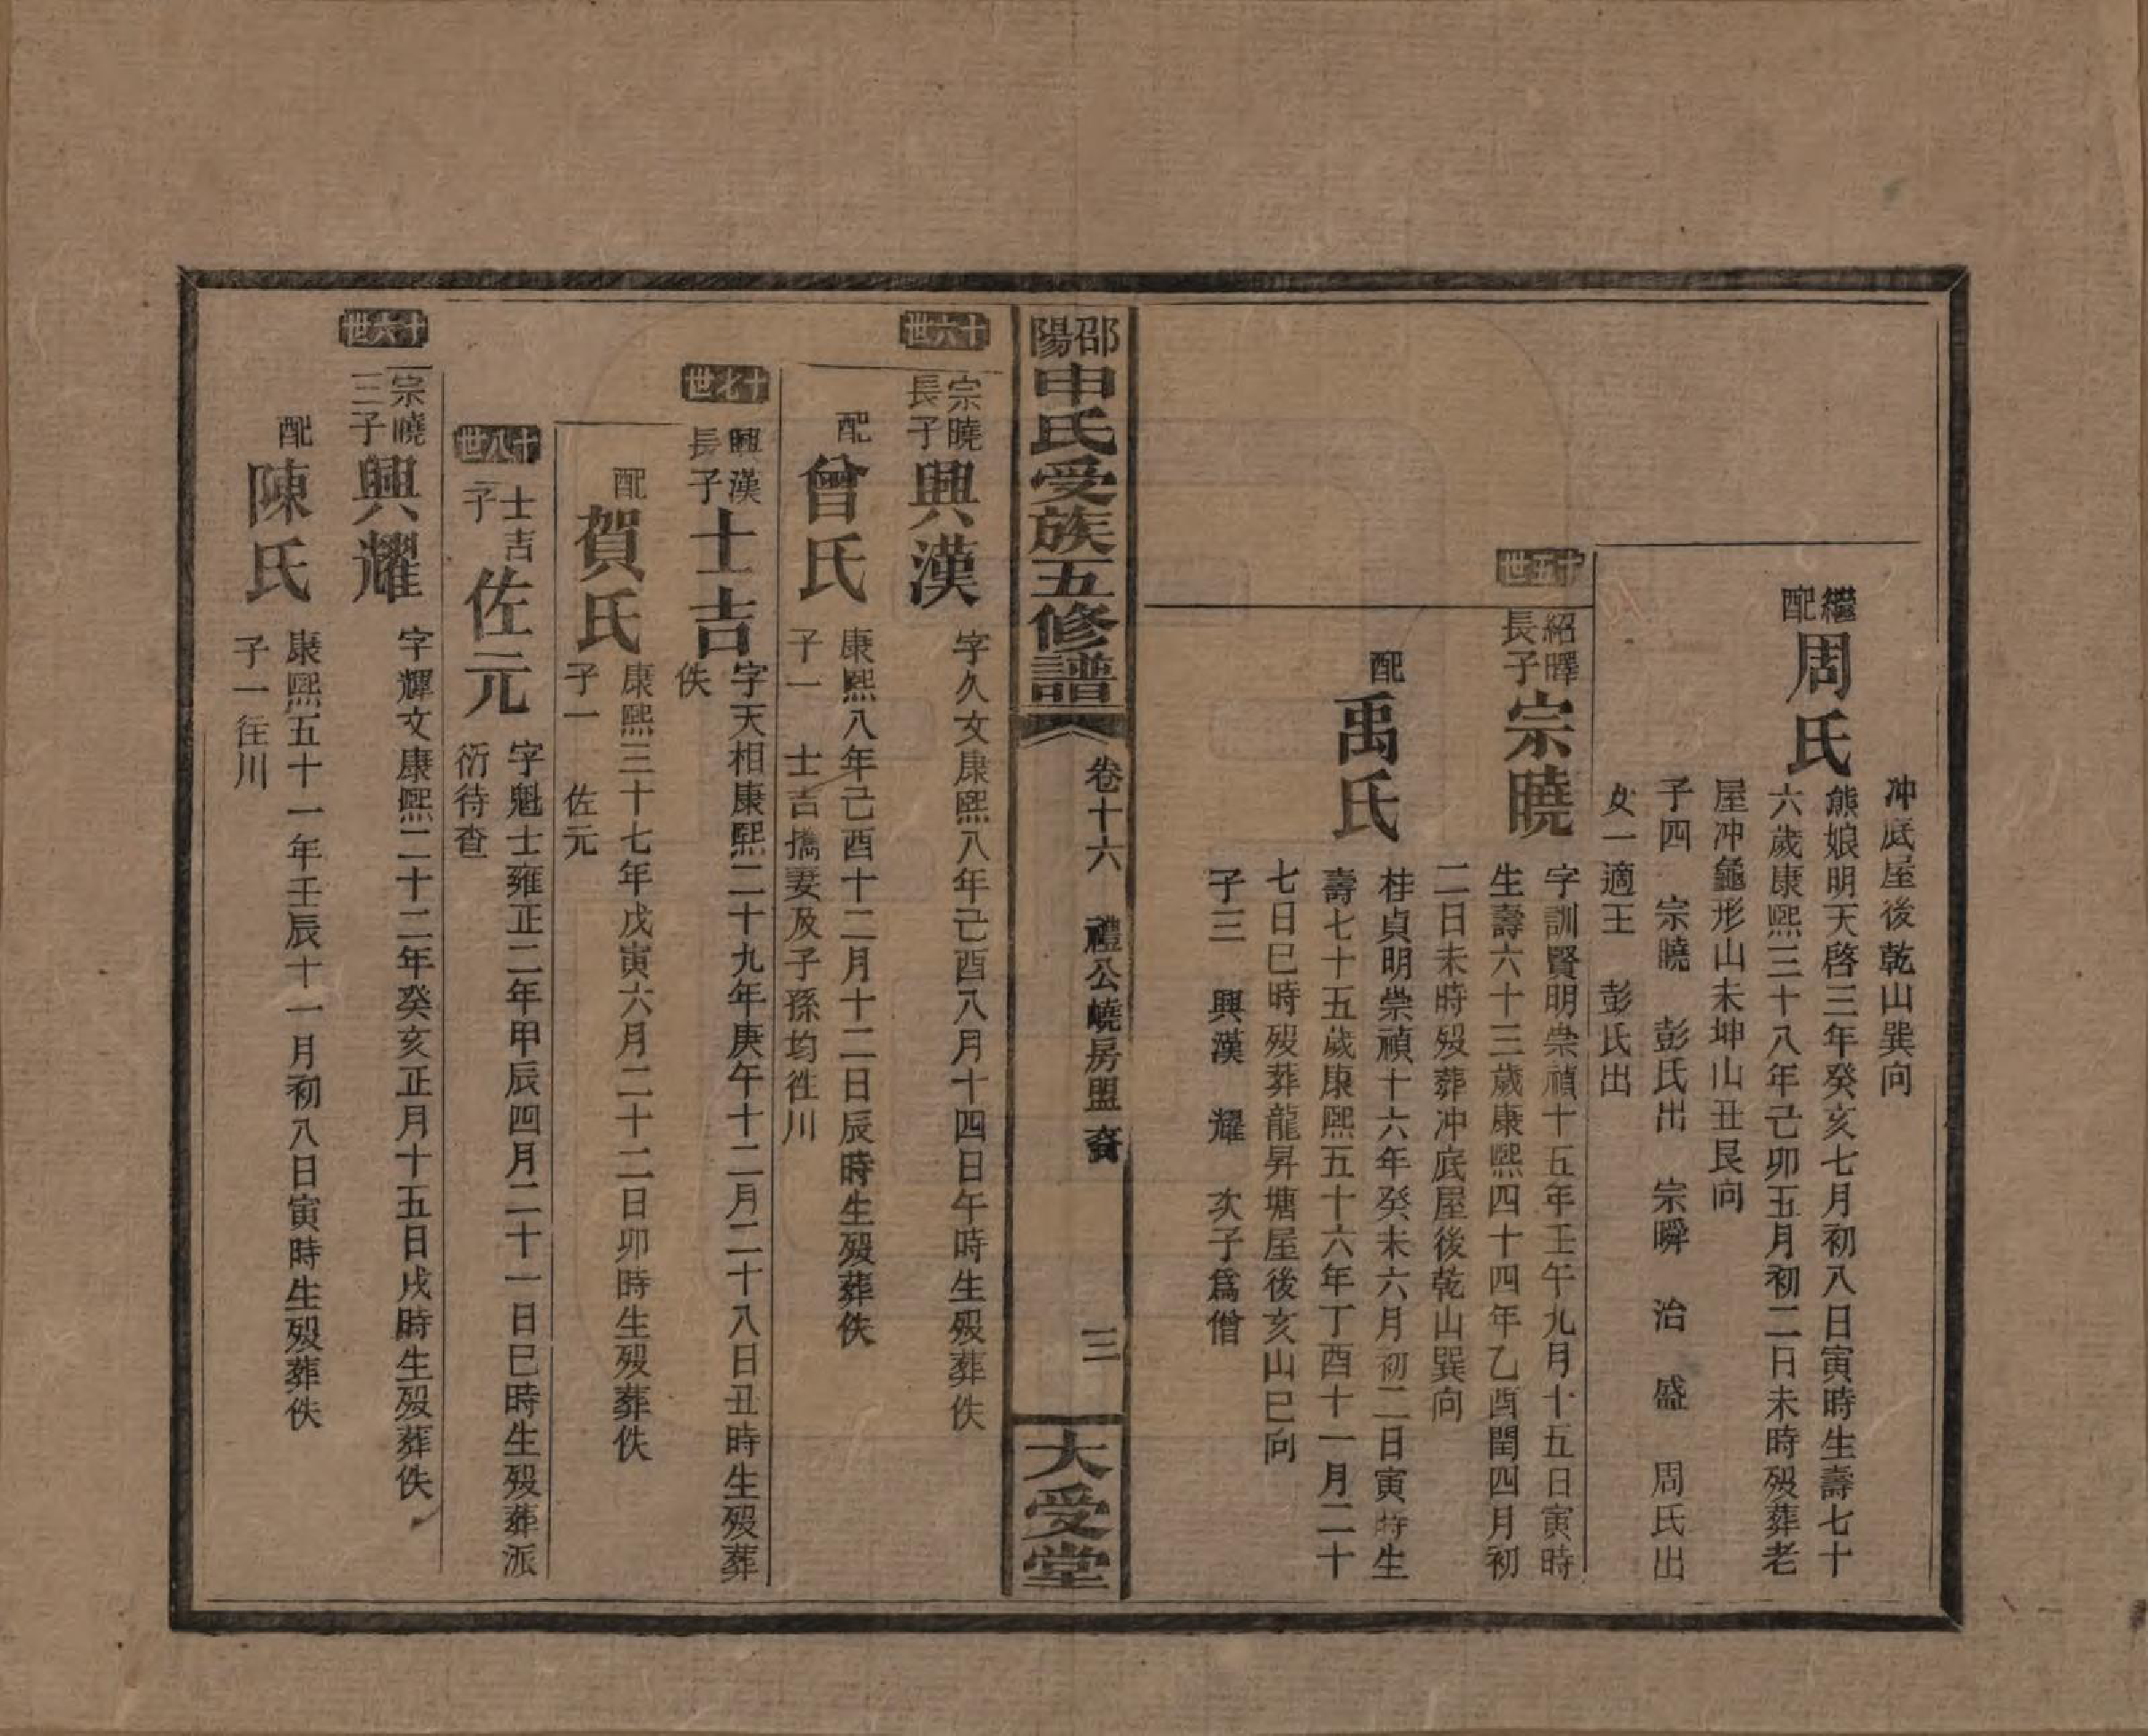 冲底屋後乾山巽向
繼配周氏
熊娘明天啓三年癸亥七月初八日寅時生壽七十
六歲康熙三十八年己卯五月初二日未時歿葬老
屋冲龜形山未坤山丑艮向
子四 宗曉 彭氏出 宗瞬 治 盛 周氏出
女一適王 彭氏出
十五世
紹曎長子宗曉
字訓賢明崇禎十五年壬午九月十五日寅時
生壽六十三歲康熙四十四年乙酉閏四月初
二日未時歿葬冲底屋後乾山巽向
配禹氏
桂貞明崇禎十六年癸未六月初二日寅時生
壽七十五歲康熙五十六年丁酉十一月二十
七日巳時歿葬龍昇塘屋後亥山巳向
子三 興漢 耀 次子爲僧
邵陽申氏受族五修譜
卷十六 禮公嶢房盟裔
三
大受堂
十六世
宗曉長子興漢
字久文康熙八年己酉八月十四日午時生歿葬佚
配曾氏
康熙八年己酉十二月十二日辰時生歿葬佚
子一 士吉攜妻及子孫均徃川
十七世
興漢長子士吉
字天相康熙二十九年庚午十二月二十八日丑時生歿葬
佚
配賀氏
康熙三十七年戊寅六月二十二日卯時生歿葬佚
子一 佐元
十八世
士吉子佐元
字魁士雍正二年甲辰四月二十一日巳時生歿葬派
衍待查
十六世
宗曉三子興耀
字輝文康熙二十二年癸亥正月十五日戌時生歿葬佚
配陳氏
康熙五十一年壬辰十一月初八日寅時生歿葬佚
子一徃川